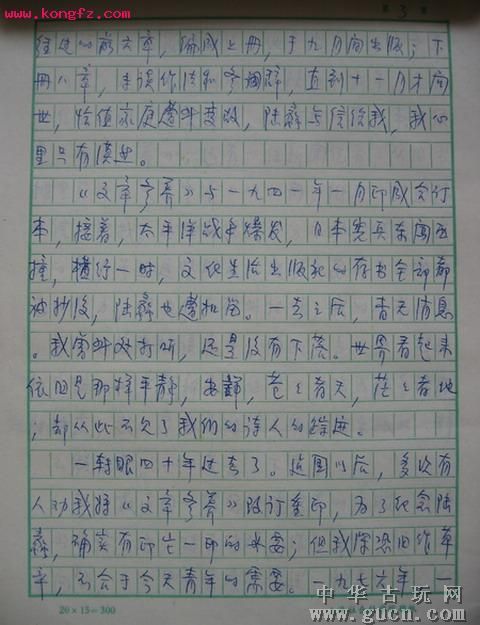 www.kongfz.com
第 3 页
经过的前六章，编成上册，于九月间出版；下
册八章，
直到十一月才问
世，恰值家庭遭到变故，陆蠡写信给我，我心
里只有凄然。
《文章修养》与一九四一年一月印成合订
本，接着，太平洋战争爆发，日本宪兵东闯西
撞，横行一时，文化生活出版社的存书全部都
被抄没，陆蠡也遭扣留。一去之后，杳无消息
。我多对打听，还是没有下落。世界看起来
依旧是那样平静，安静，苍苍者天，茫茫者地
，却从此不见了我们的诗人的踪迹。
一转眼四十年过去了。建国以后，多次有
人劝我将《文章修养》改订重印，为了纪念陆
蠡，确实有印它一印的必要；但我深恐旧作草
率，不合于今天青年的需要。一九七六年，一
20×15=300
中华古玩网
www.gucn.com